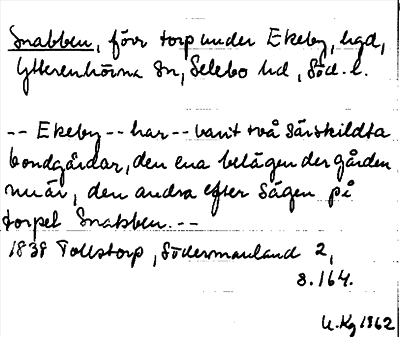 Snabben, förr torp under Ekeby, hgd,
Ytterenhörna sn, Selebo hd, Söd. l.
-- Ekeby -- har -- varit två särskildta
bondgårdar, den ena belägen der gården
nu är, den andra efter sägen på
torpet Snabben. --
1838 Tollstorp, Södermanland 2,
s. 164.
U. Kg 1862